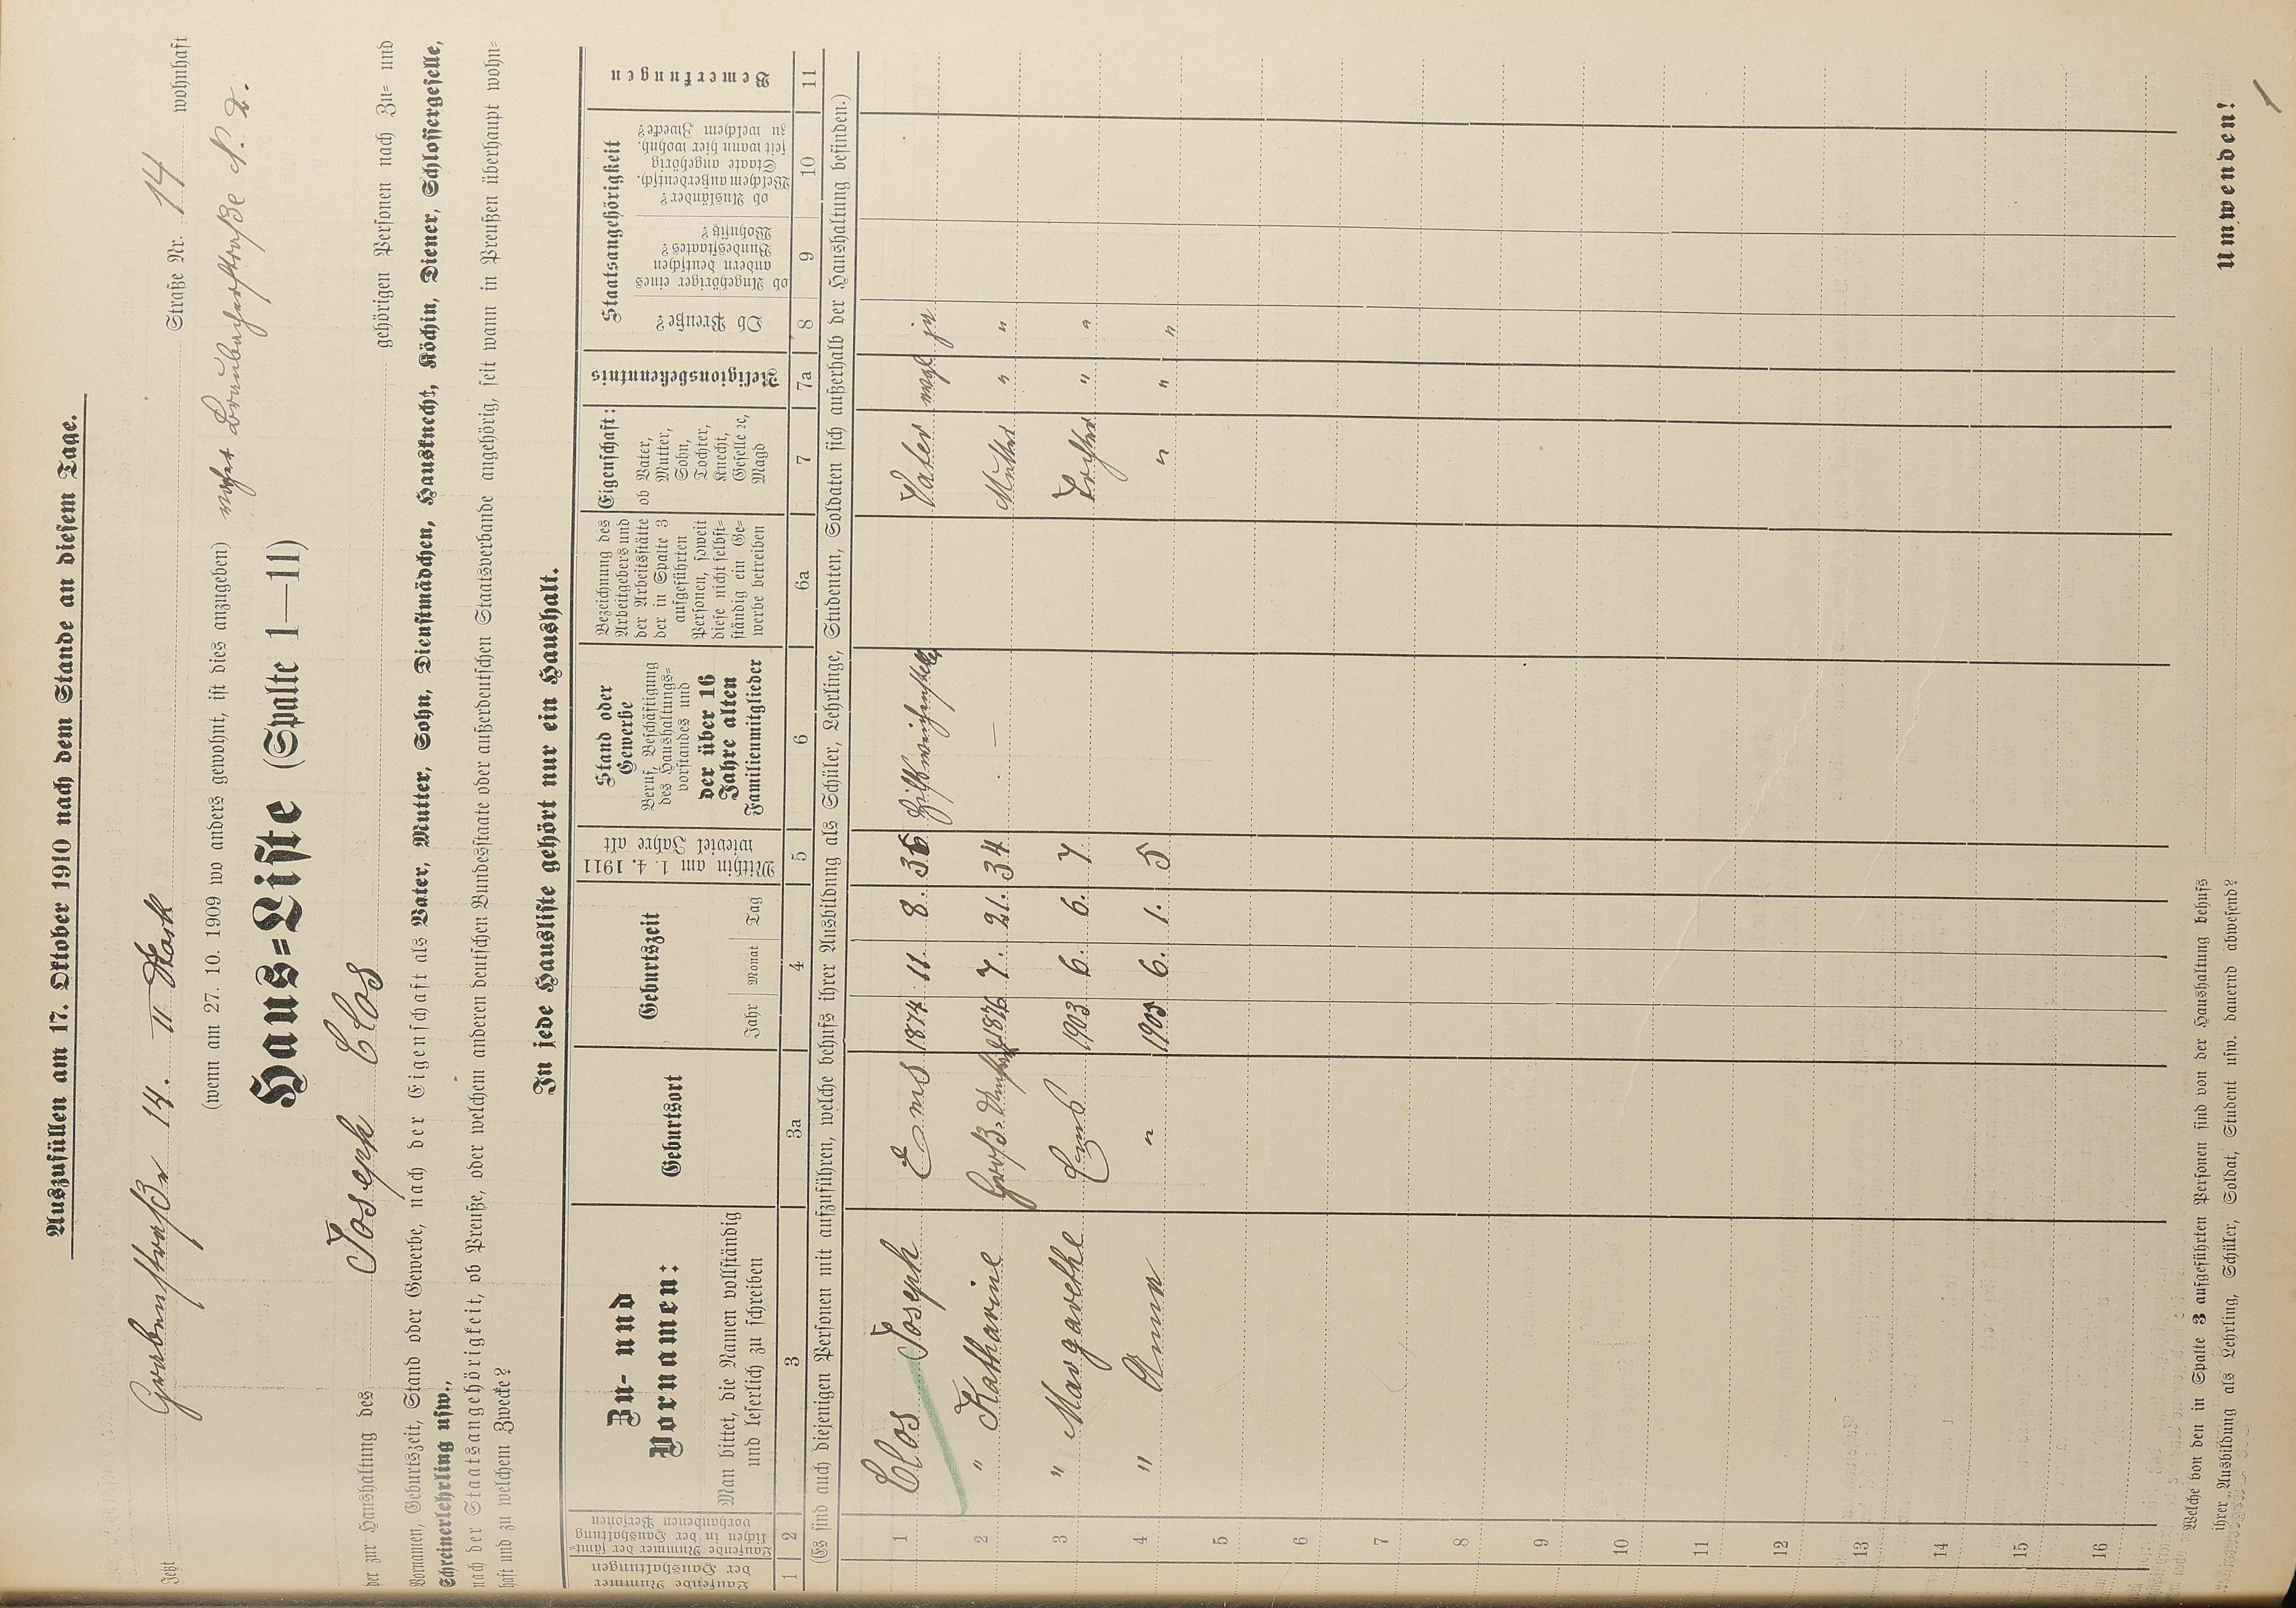 Auszufüllen am 17. Oktober 1910 nach dem Stande an diesem Tage.
Jetzt Grabenstraße 14. II Stock Straße Nr. 14 wohnhaft
(wenn am 27. 10. 1909 wo anders gewohnt, ist dies anzugeben)
Haus=Liste (Spalte 1—11)
der zur Haushaltung des Joseph Clos gehörigen Personen nach Zu= und
Vornamen, Geburtszeit, Stand oder Gewerbe, nach der Eigenschaft als Vater, Mutter, Sohn, Dienstmädchen, Hausknecht, Köchin, Diener, Schlossergeselle,
Schreinerlehrling usw.,
nach der Staatsangehörigkeit, ob Preuße, oder welchem anderen deutschen Bundesstaate oder außerdeutschen Staatsverbande angehörig, seit wann in Preußen überhaupt wohn=
haft und zu welchem Zwecke?
In jede Hausliste gehört nur ein Haushalt.
Laufende Nummer
der Haushaltungen
Laufende Nummer der sämt=
lichen in der Haushaltung
vorhandenen Personen
Zu- und
Vornamen:
Man bittet, die Namen vollständig
und leserlich zu schreiben
Geburtsort
Geburtszeit
Jahr Monat Tag
Mithin am 1. 4. 1911
wieviel Jahre alt
Stand oder
Gewerbe
Beruf, Beschäftigung
des Haushaltungs=
vorstandes und
der über 16
Jahre alten
Familienmitglieder
Bezeichnung des
Arbeitgebers und
der Arbeitsstätte
der in Spalte 3
aufgeführten
Personen, soweit
diese nicht selbst=
ständig ein Ge=
werbe betreiben
Eigenschaft:
ob Vater,
Mutter,
Sohn,
Tochter,
Knecht,
Geselle ꝛc,
Magd
Religionsbekenntnis
Staatsangehörigkeit
Ob Preuße?
ob Angehöriger eines
andern deutschen
Bundesstaates?
Wohnsitz?
ob Ausländer?
Welchem außerdeutsch.
Staate angehörig
seit wann hier wohnh.
zu welchem Zwecke?
Bemerkungen
1 2 3 3a 4 5 6 6a 7 7a 8 9 10 11
(Es sind auch diejenigen Personen mit aufzuführen, welche behufs ihrer Ausbildung als Schüler, Lehrlinge, Studenten, Soldaten sich außerhalb der Haushaltung befinden.)
1 Clos Joseph Ems 1874 11. 8. 36 Hilfsweichensteller Vater ja
2 " Katharine 1876 7. 21. 34 — Mutter " "
3 " Margarethe Ems 1903 6. 6. 7 Tochter " "
4 " Anna " 1905 6. 1. 5 " " "
5
6
7
8
9
10
11
12
13
14
15
16
Welche von den in Spalte 3 aufgeführten Personen sind von der Haushaltung behufs
ihrer Ausbildung als Lehrling, Schüler, Soldat, Student usw. dauernd abwesend?
Umwenden!